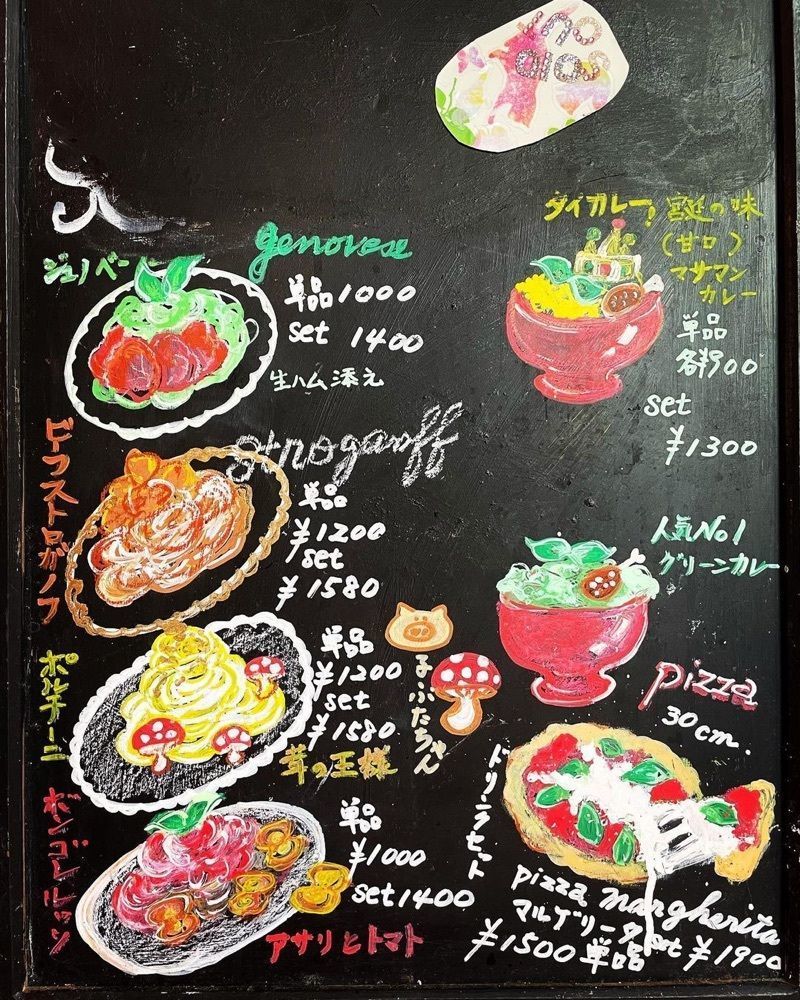 genovese
ジェノベーゼ
単品1000
set 1400
生ハム添え
stroganoff
ビーフストロガノフ
単品
¥1200
set
¥1580
ポルチーニ
単品
¥1200
set
¥1580
茸の王様
こぶたちゃん
ボンゴレルッソ
単品
¥1000
set 1400
アサリとトマト
タイカレー! 宮廷の味
(甘口)
マサマン
カレー
単品
各¥900
set
¥1300
人気No1
グリーンカレー
pizza
30cm.
ドリサラセット
pizza margherita
マルゲリータ
¥1500単品
set ¥1900